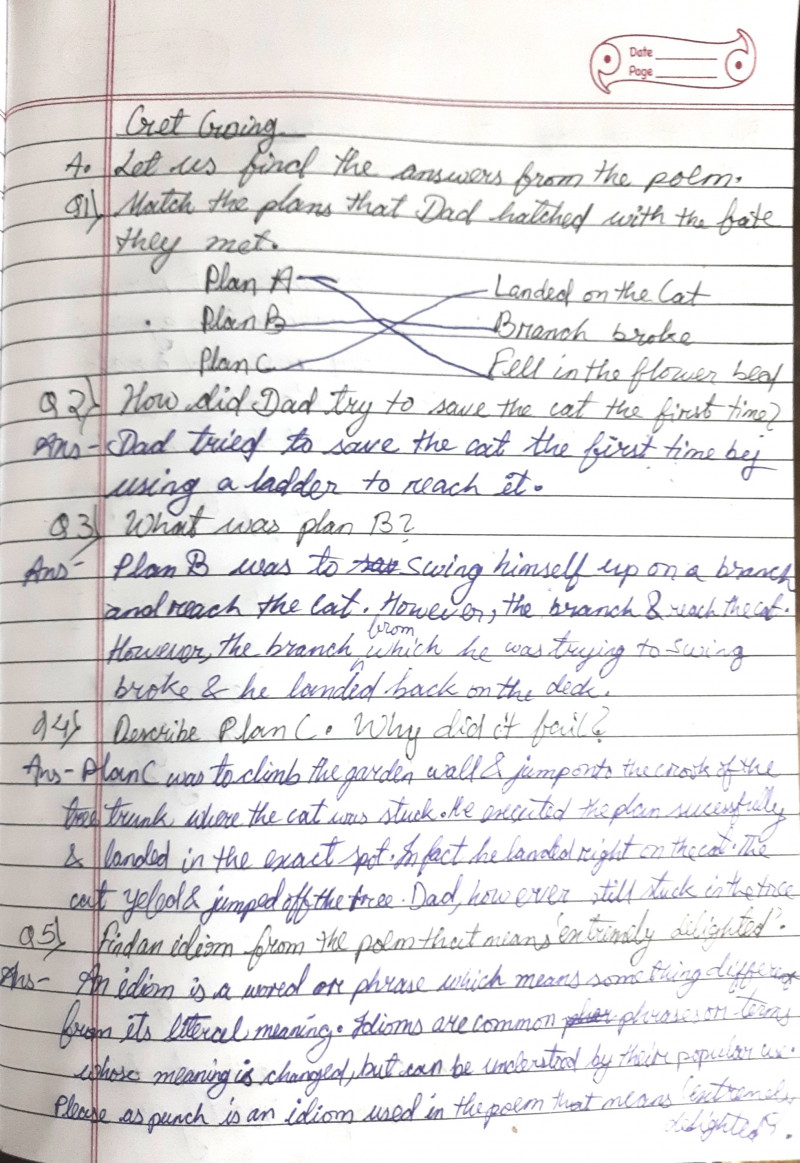 Date
Page
Get Going
A. Let us find the answers from the poem.
Q1) Match the plans that Dad hatched with the fate
they met.
Plan A Landed on the Cat
Plan B Branch broke
Plan C Fell in the flower bed
Q2) How did Dad try to save the cat the first time?
Ans - Dad tried to save the cat the first time by
using a ladder to reach it.
Q3) What was plan B?
Ans - Plan B was to swing himself up on a branch
and reach the cat. However, the branch & reach the cat.
However, the branch from which he was trying to swing
broke & he landed back on the deck.
Q4) Describe Plan C. Why did it fail?
Ans - Plan C was to climb the garden wall & jump onto the crook of the
tree trunk where the cat was stuck. He executed the plan sucessfully
& landed in the exact spot. In fact he landed right on the cat. The
cat yeled & jumped off the tree. Dad, however still stuck in the tree
Q5) find an idiom from the poem that means 'extremily delighted'.
Ans - An idiom is a word or phrase which means something different
from its literal meaning. Idioms are common phrases or terms
whose meaning is changed, but can be understood by their popular use.
Please as punch is an idiom used in the poem that means 'extremely
delighted'.